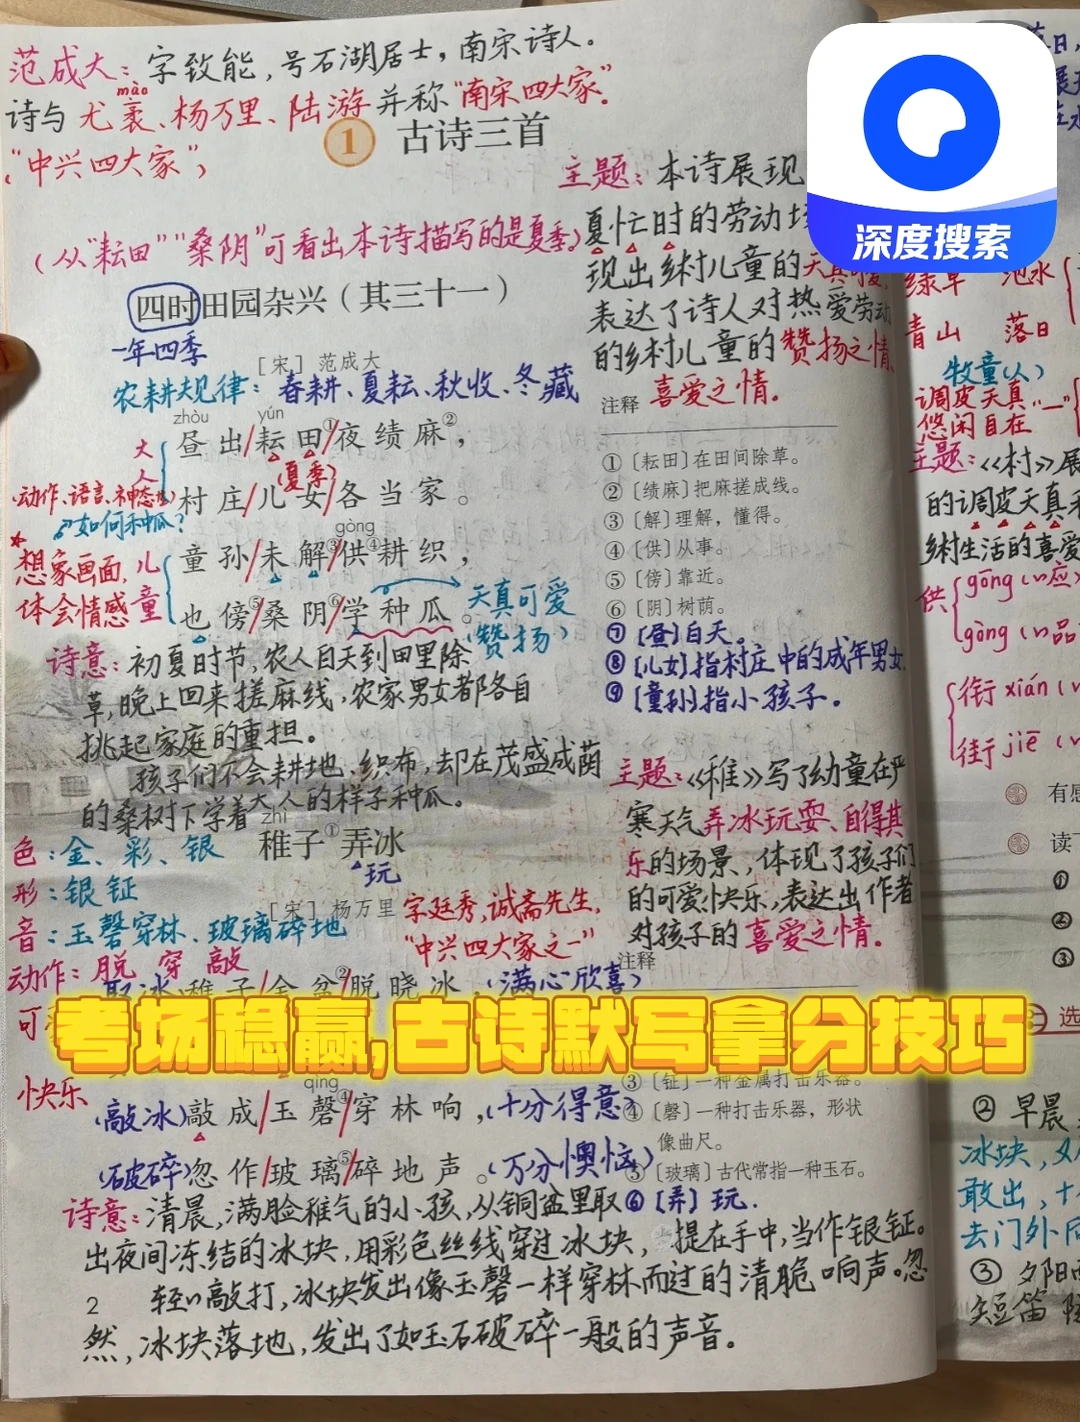 范成大：字致能，号石湖居士，南宋诗人。
诗与尤袤、杨万里、陆游并称"南宋四大家"。
mào
"中兴四大家"，
1 古诗三首
（从"耘田""桑阴"可看出本诗描写的是夏季）
四时田园杂兴（其三十一）
一年四季
［宋］范成大
农耕规律：春耕、夏耘、秋收、冬藏
zhòu yún
大人
昼出/耘田①/夜绩麻②，
（夏季）
村庄/儿女/各当家。
动作、语言、神态
如何种瓜？
想象画面，
体会情感
儿童
gòng
童孙/未解③/供④耕织，
也傍⑤/桑阴⑥/学种瓜。
天真可爱
（赞扬）
诗意：初夏时节，农人白天到田里除
草，晚上回来搓麻线，农家男女都各自
挑起家庭的重担。
孩子们不会耕地、织布，却在茂盛成荫
的桑树下学着大人的样子种瓜。
主题：本诗展现
夏忙时的劳动场
现出乡村儿童的天真可爱，
表达了诗人对热爱劳动
的乡村儿童的赞扬之情、
喜爱之情。
注释
①〔耘田〕在田间除草。
②〔绩麻〕把麻搓成线。
③〔解〕理解，懂得。
④〔供〕从事。
⑤〔傍〕靠近。
⑥〔阴〕树荫。
⑦［昼］白天。
⑧［儿女］指村庄中的成年男女.
⑨［童孙］指小孩子.
zhì
稚子①弄冰
玩
［宋］杨万里
字廷秀，诚斋先生，
"中兴四大家之一"
色：金、彩、银
形：银钲
音：玉磬穿林、玻璃碎地
动作：脱 穿 敲
（取冰）稚子/金盆②脱晓冰，（满心欢喜）
可
快乐
qìng
（敲冰）敲成/玉磬④/穿林响，（十分得意）
（破碎）忽作/玻璃⑤/碎地声。（万分懊恼）
诗意：清晨，满脸稚气的小孩，从铜盆里取
出夜间冻结的冰块，用彩色丝线穿过冰块，提在手中，当作银钲。
轻轻敲打，冰块发出像玉磬一样穿林而过的清脆响声。忽
然，冰块落地，发出了如玉石破碎一般的声音。
2
主题：《稚》写了幼童在严
寒天气弄冰玩耍、自得其
乐的场景，体现了孩子们
的可爱快乐，表达出作者
对孩子的喜爱之情。
注释
③〔钲〕一种金属打击乐器。
④〔磬〕一种打击乐器，形状
像曲尺。
⑤〔玻璃〕古代常指一种玉石。
⑥［弄］玩.
考场稳赢，古诗默写拿分技巧
深度搜索
绿草 池水
青山 落日
牧童（人）
调皮天真
悠闲自在
主题：《村》展
的调皮天真和
乡村生活的喜爱
供
gōng（应）
gòng（品
衔 xián
街 jiē
有感
读
①
②
③
选
② 早晨
冰块，又
敢出，十
去门外同
③ 夕阳西
短笛 随